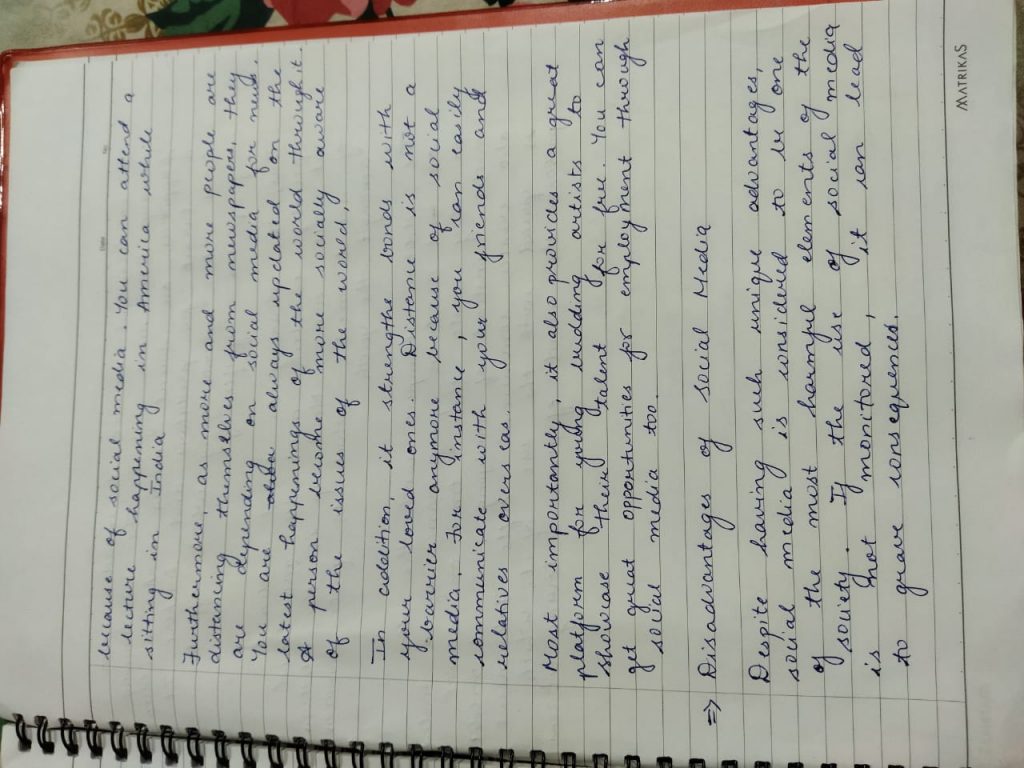 because of social media. You can attend a
lecture happening in America while
sitting in India
Furthermore, as more and more people are
distancing themselves from newspapers, they
are depending on social media for news.
You are always updated on the
latest happenings of the world through it.
A person become more socially aware
of the issues of the world,
In addition, it strengthe bonds with
your loved ones. Distance is not a
barrier anymore because of social
media. For instance, you can easily
communicate with your friends and
relatives overseas.
Most importantly, it also provides a great
platform for young budding artists to
showcase their talent for free. You can
get great opportunities for employment through
social media too.
=> Disadvantages of social Media
Despite having such unique advantages,
social media is considered to be one
of the most harmful elements of the
society. If the use of social media
is not monitored, it can lead
to grave consequences.
MATRIKAS